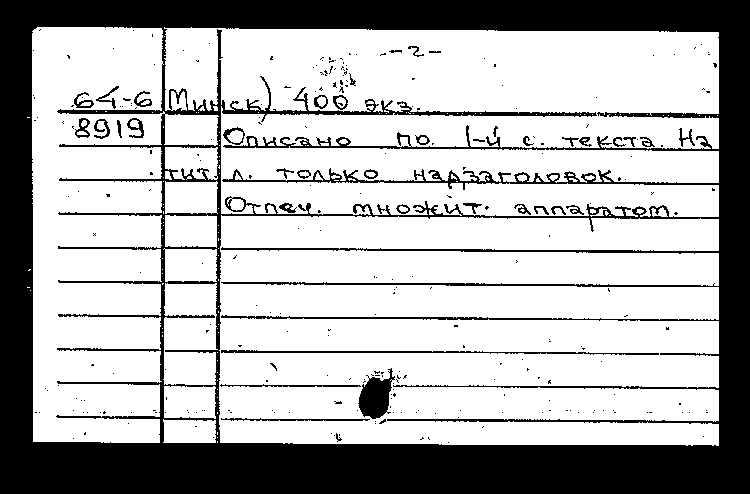 -2-
64-6 Минск) 400 экз.
8919 Описано по 1-й с. текста. На
тит. л. только надзаголовок.
Отпеч. множит. аппаратом.